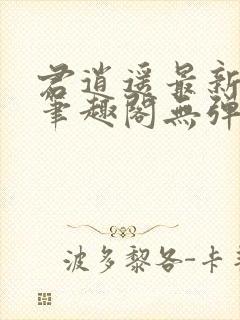 君逍遥最新
笔趣阁无弹
波多黎各-卡